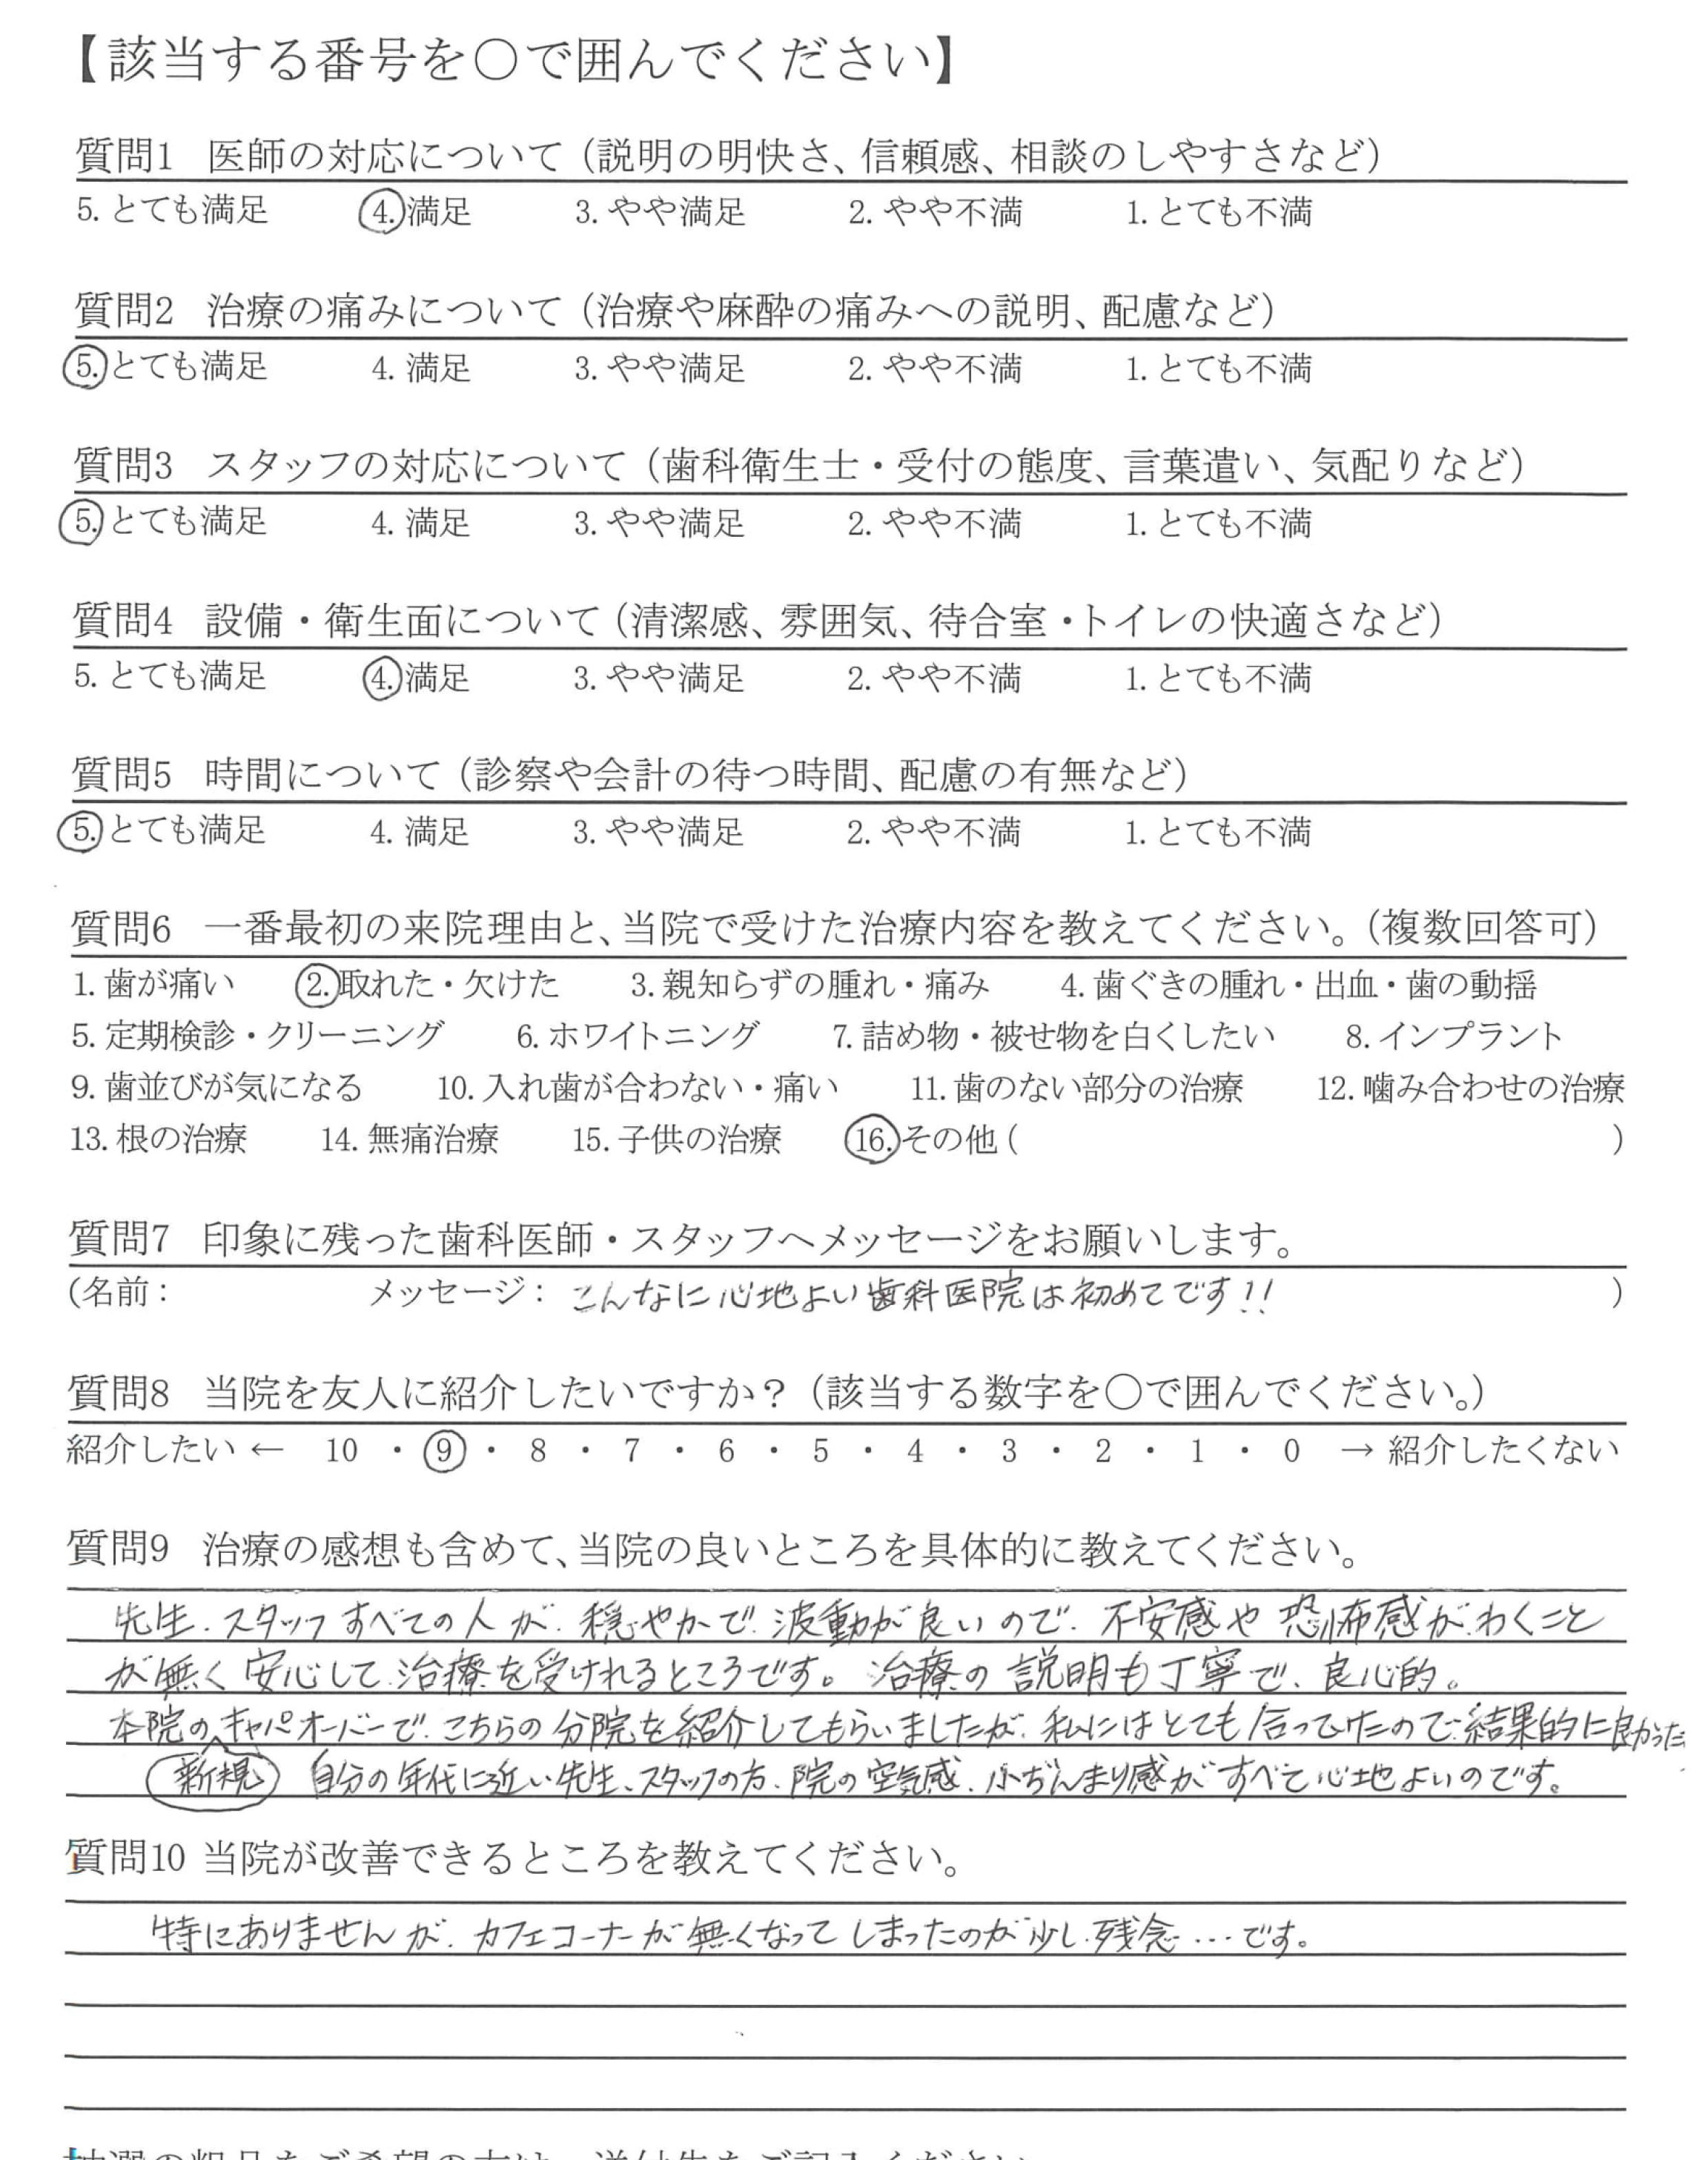 【該当する番号を○で囲んでください】
質問1 医師の対応について（説明の明快さ、信頼感、相談のしやすさなど）
5. とても満足 4. 満足 3. やや満足 2. やや不満 1. とても不満
質問2 治療の痛みについて（治療や麻酔の痛みへの説明、配慮など）
5. とても満足 4. 満足 3. やや満足 2. やや不満 1. とても不満
質問3 スタッフの対応について（歯科衛生士・受付の態度、言葉遣い、気配りなど）
5. とても満足 4. 満足 3. やや満足 2. やや不満 1. とても不満
質問4 設備・衛生面について（清潔感、雰囲気、待合室・トイレの快適さなど）
5. とても満足 4. 満足 3. やや満足 2. やや不満 1. とても不満
質問5 時間について（診察や会計の待つ時間、配慮の有無など）
5. とても満足 4. 満足 3. やや満足 2. やや不満 1. とても不満
質問6 一番最初の来院理由と、当院で受けた治療内容を教えてください。（複数回答可）
1. 歯が痛い 2. 取れた・欠けた 3. 親知らずの腫れ・痛み 4. 歯ぐきの腫れ・出血・歯の動揺
5. 定期検診・クリーニング 6. ホワイトニング 7. 詰め物・被せ物を白くしたい 8. インプラント
9. 歯並びが気になる 10. 入れ歯が合わない・痛い 11. 歯のない部分の治療 12. 噛み合わせの治療
13. 根の治療 14. 無痛治療 15. 子供の治療 16. その他（ ）
質問7 印象に残った歯科医師・スタッフへメッセージをお願いします。
（名前： メッセージ： こんなに心地よい歯科医院は初めてです!! ）
質問8 当院を友人に紹介したいですか？（該当する数字を○で囲んでください。）
紹介したい ← 10 ・ 9 ・ 8 ・ 7 ・ 6 ・ 5 ・ 4 ・ 3 ・ 2 ・ 1 ・ 0 → 紹介したくない
質問9 治療の感想も含めて、当院の良いところを具体的に教えてください。
先生、スタッフすべての人が、穏やかで波動が良いので、不安感や恐怖感がわくこと
が無く安心して治療を受けれるところです。治療の説明も丁寧で、良心的。
本院のキャパオーバーで、こちらの分院を紹介してもらいましたが、私にはとても合っていたので結果的に良かった
新規 自分の年代に近い先生、スタッフの方、院の空気感、小ぢんまり感がすべて心地よいのです。
質問10 当院が改善できるところを教えてください。
特にありませんが、カフェコーナーが無くなってしまったのが少し残念…です。